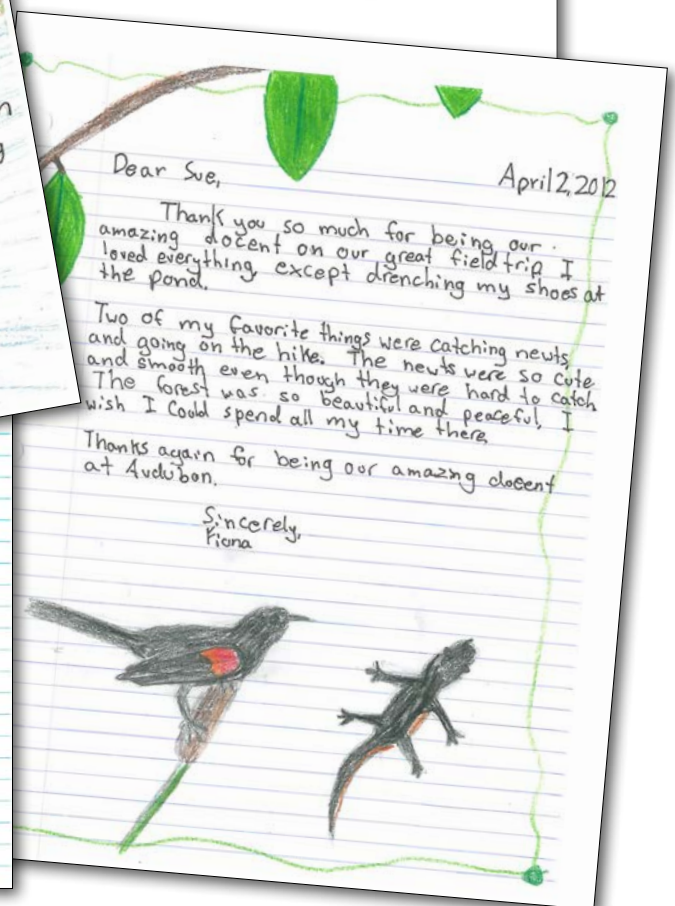 Dear Sue,
April 2, 2012
Thank you so much for being our
amazing docent on our great fieldtrip I
loved everything, except drenching my shoes at
the pond.
Two of my favorite things were catching newts
and going on the hike. The newts were so cute
and smooth even though they were hard to catch
The forest was so beautiful and peaceful, I
wish I could spend all my time there,
Thanks again for being our amazng docent
at Audubon.
Sincerely,
Fiona